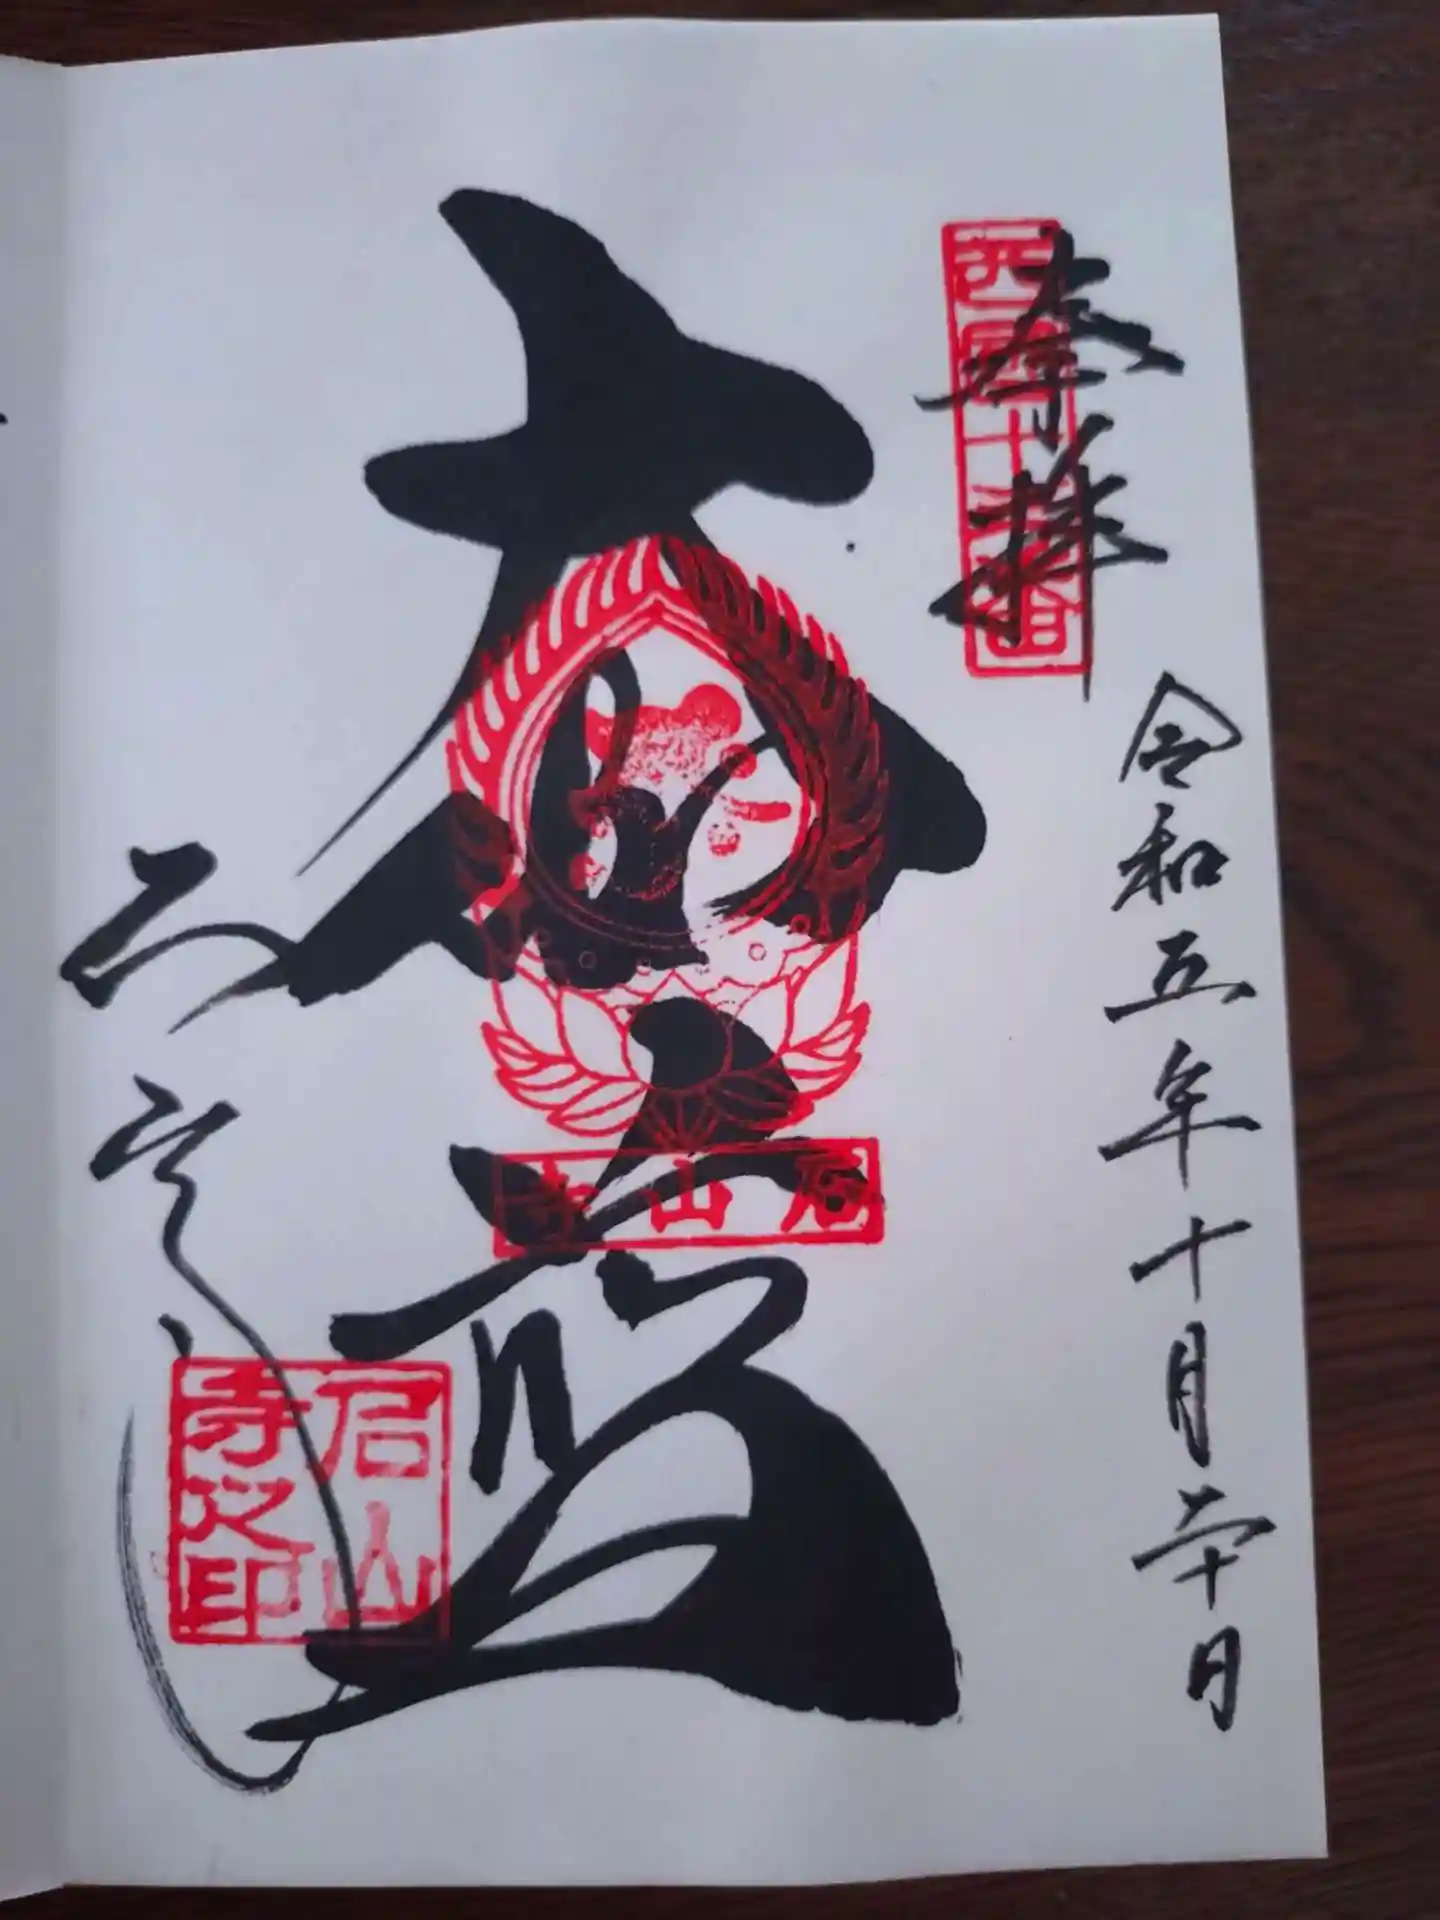 奉拝
西國十三番
令和五年十月二十日
大伽藍
石山寺
石山寺
石山寺之印